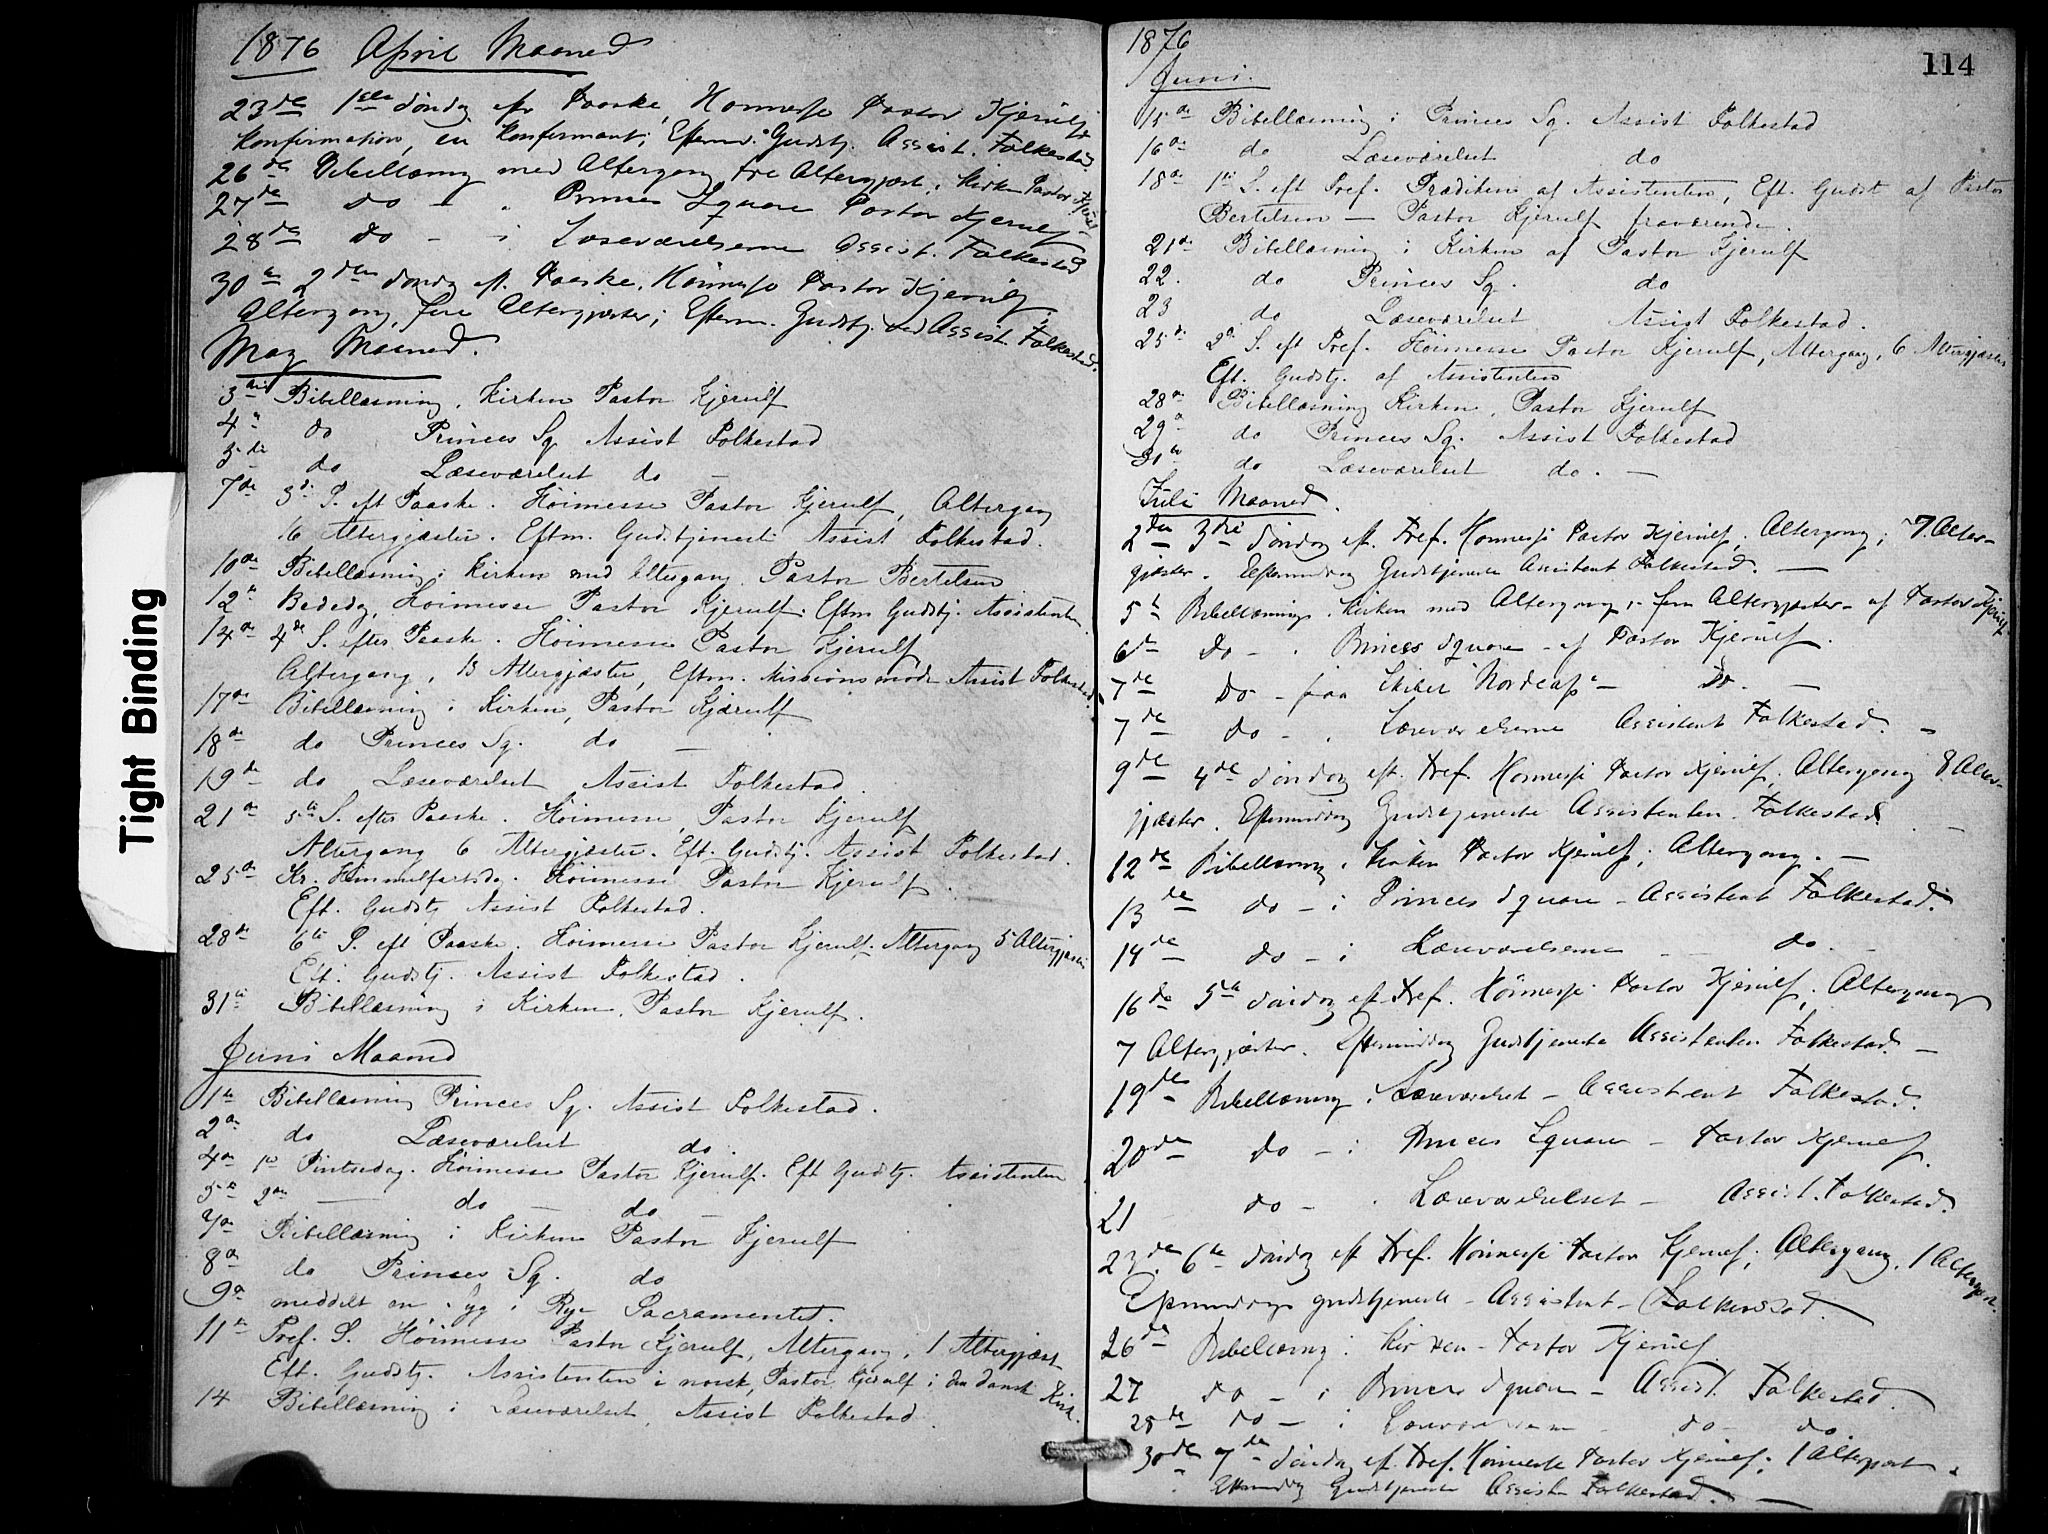 1876 April Maaned
23de 1ste Søndag eft Paaske, Høimesse Pastor Kjerulf
Konfirmation, en Konfirmant; Efterm. Gudstj. Assist. Folkestad.
26de Bibellæsning med Altergang tre Altergjæst. i Kirken Pastor Kjerulf
27de do - " Princes Square Pastor Kjerulf
28de do - i Læseværelserne Assist. Folkestad
30te 2den Søndag eft. Paaske, Høimesse Pastor Kjerulf
Altergang, fire Altergjæster; Efterm. Gudstj. ved Assist. Folkestad.
May Maaned.
3die Bibellæsning, Kirken Pastor Kjerulf
4de do Princes Sq. Assist Folkestad
5te do Læseværelset do -
7de 3die S. eft Paaske. Høimesse Pastor Kjerulf, Altergang
16 Altergjæster. Eftm. Gudstjeneste Assist Folkestad.
10de Bibellæsning i Kirken med Altergang. Pastor Bertelsen
12te Bededag, Høimesse Pastor Kjerulf. Eftm Gudstj. Assistenten.
14de 4de S. efter Paaske. Høimesse Pastor Kjerulf
Altergang, 13 Altergjæster, Eftm. Missionsmøde Assist Folkestad.
17de Bibellæsning i Kirken, Pastor Kjærulf
18de do Princes Sq. do -
19de do Læseværelset Assist Folkestad.
21de 5te S. efter Paaske. Høimesse, Pastor Kjerulf
Altergang 6 Altergjæster. Eft. Gudstj. Assist Folkestad.
25de Kr. Himmelfartsda. Høimesse Pastor Kjerulf.
Eft. Gudstj Assist Folkestad.
28de 6te S. eft Paaske. Høimesse Pastor Kjerulf. Altergang 5 Altergjæster
Eft. Gudstj. Assist Folkestad.
31te Bibellæsning i Kirken, Pastor Kjerulf.
Juni Maaned
1te Bibellæsning Princes Sq. Assist Folkestad.
2de do Læseværelset do.
4de 1te Pintsedag. Høimesse Pastor Kjerulf. Eft Gudstj. Assistenten
5te 2den — do — do —
7de Bibellæsning i Kirken Pastor Kjerulf
8de do Princes Sq. do
9de meddelt en syg i Rye Sacramentet.
11te Tref. S. Høimesse Pastor Kjerulf, Altergang, 1 Altergjæst
Eft. Gudstj. Assistenten i norsk, Pastor Kjerulf i den dansk Kirk.
14 Bibellæsning i Læseværelset, Assist Folkestad.
1876
Juni.
114
15de Bibellæsning i Princes Sq. Assist Folkestad
16de do Læseværelset do
18de 1te S. eft Tref. Prædiken af Assistenten, Eft. Gudst af Pastor
Bertelsen — Pastor Kjerulf fraværende.
21de Bibellæsning i Kirken af Pastor Kjerulf
22. do Princes Sq. do
23 do Læseværelset Assist Folkestad.
25de 2de S. eft Tref. Høimesse Pastor Kjerulf, Altergang, 6 Altergjæster
Eft. Gudstj. af Assistenten
28de Bibellæsning Kirken, Pastor Kjerulf
29de do Princes Sq. Assist Folkestad
do Læseværelset do. —
Juli Maaned.
2den 3die Søndag eft. Tref. Høimesse Pastor Kjerulf, Altergang; 7 Alter-
gjæster. Eftermiddag Gudstjeneste Assistent Folkestad. —
5te Bibellæsning i Kirken med Altergang, fem Altergjæster - af Pastor Kjerulf
6te do - i Princes Square - af Pastor Kjerulf.
7de do - paa Skibet "Nordcap" - do. —
7de do - i Læseværelserne Assistent Folkestad. -
9de 4de Søndag eft. Tref. Høimesse Pastor Kjerulf, Altergang 8 Alter-
gjæster. Eftermiddag Gudstjeneste Assistenten Folkestad. —
12de Bibellæsning i Kirken Pastor Kjerulf; Altergang. —
13de do - i Princes Square - Assistent Folkestad.
14de do - i Læseværelserne - do. -
16de 5te Søndag eft Tref. Høimesse Pastor Kjerulf; Altergang
7 Altergjæster. Eftermiddag Gudstjeneste Assistenten Folkestad. —
19de Bibellæsning i Læseværelset - Assistent Folkestad.
20de do - i Princes Square - Pastor Kjerulf.
21 do - i Læseværelset - Assist. Folkestad.
23de 6te Søndag eft Tref. Høimesse Pastor Kjerulf; Altergang, 1 Altergjæst.
Eftermiddags gudstjeneste - Assistent - Folkestad.
26de Bibellæsning i Kirken - Pastor Kjerulf.
27 do - i Princes Square - Assist. Folkestad.
28de do - i Læseværelserne - do - do.
30de 7de Søndag eft. Tref. Høimesse Pastor Kjerulf; 1 Altergjæst.
Eftermiddag Gudstjeneste Assisten Folkestad. —
Tight Binding